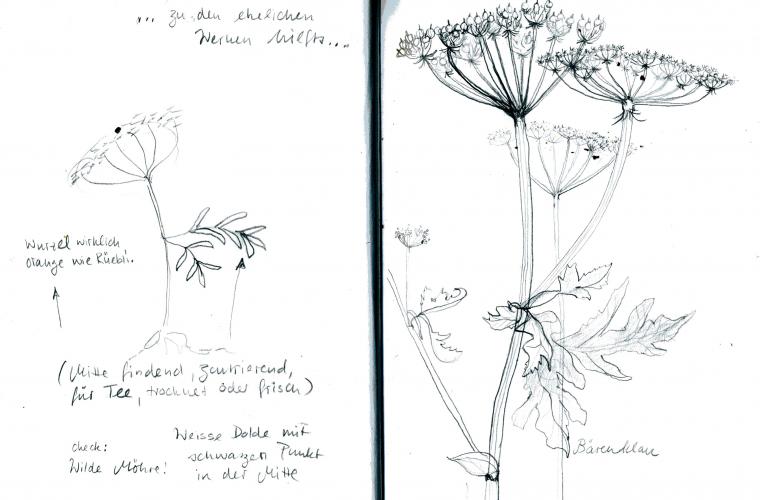 ... zu den ehelichen
Werken hilfts...
Wurzel wirklich
orange wie Rüebli.
(Mitte findend, zentrierend,
für Tee, trocknet oder frisch)
check:
Wilde Möhre!
Weisse Dolde mit
schwarzen Punkt
in der Mitte
Bärenklau